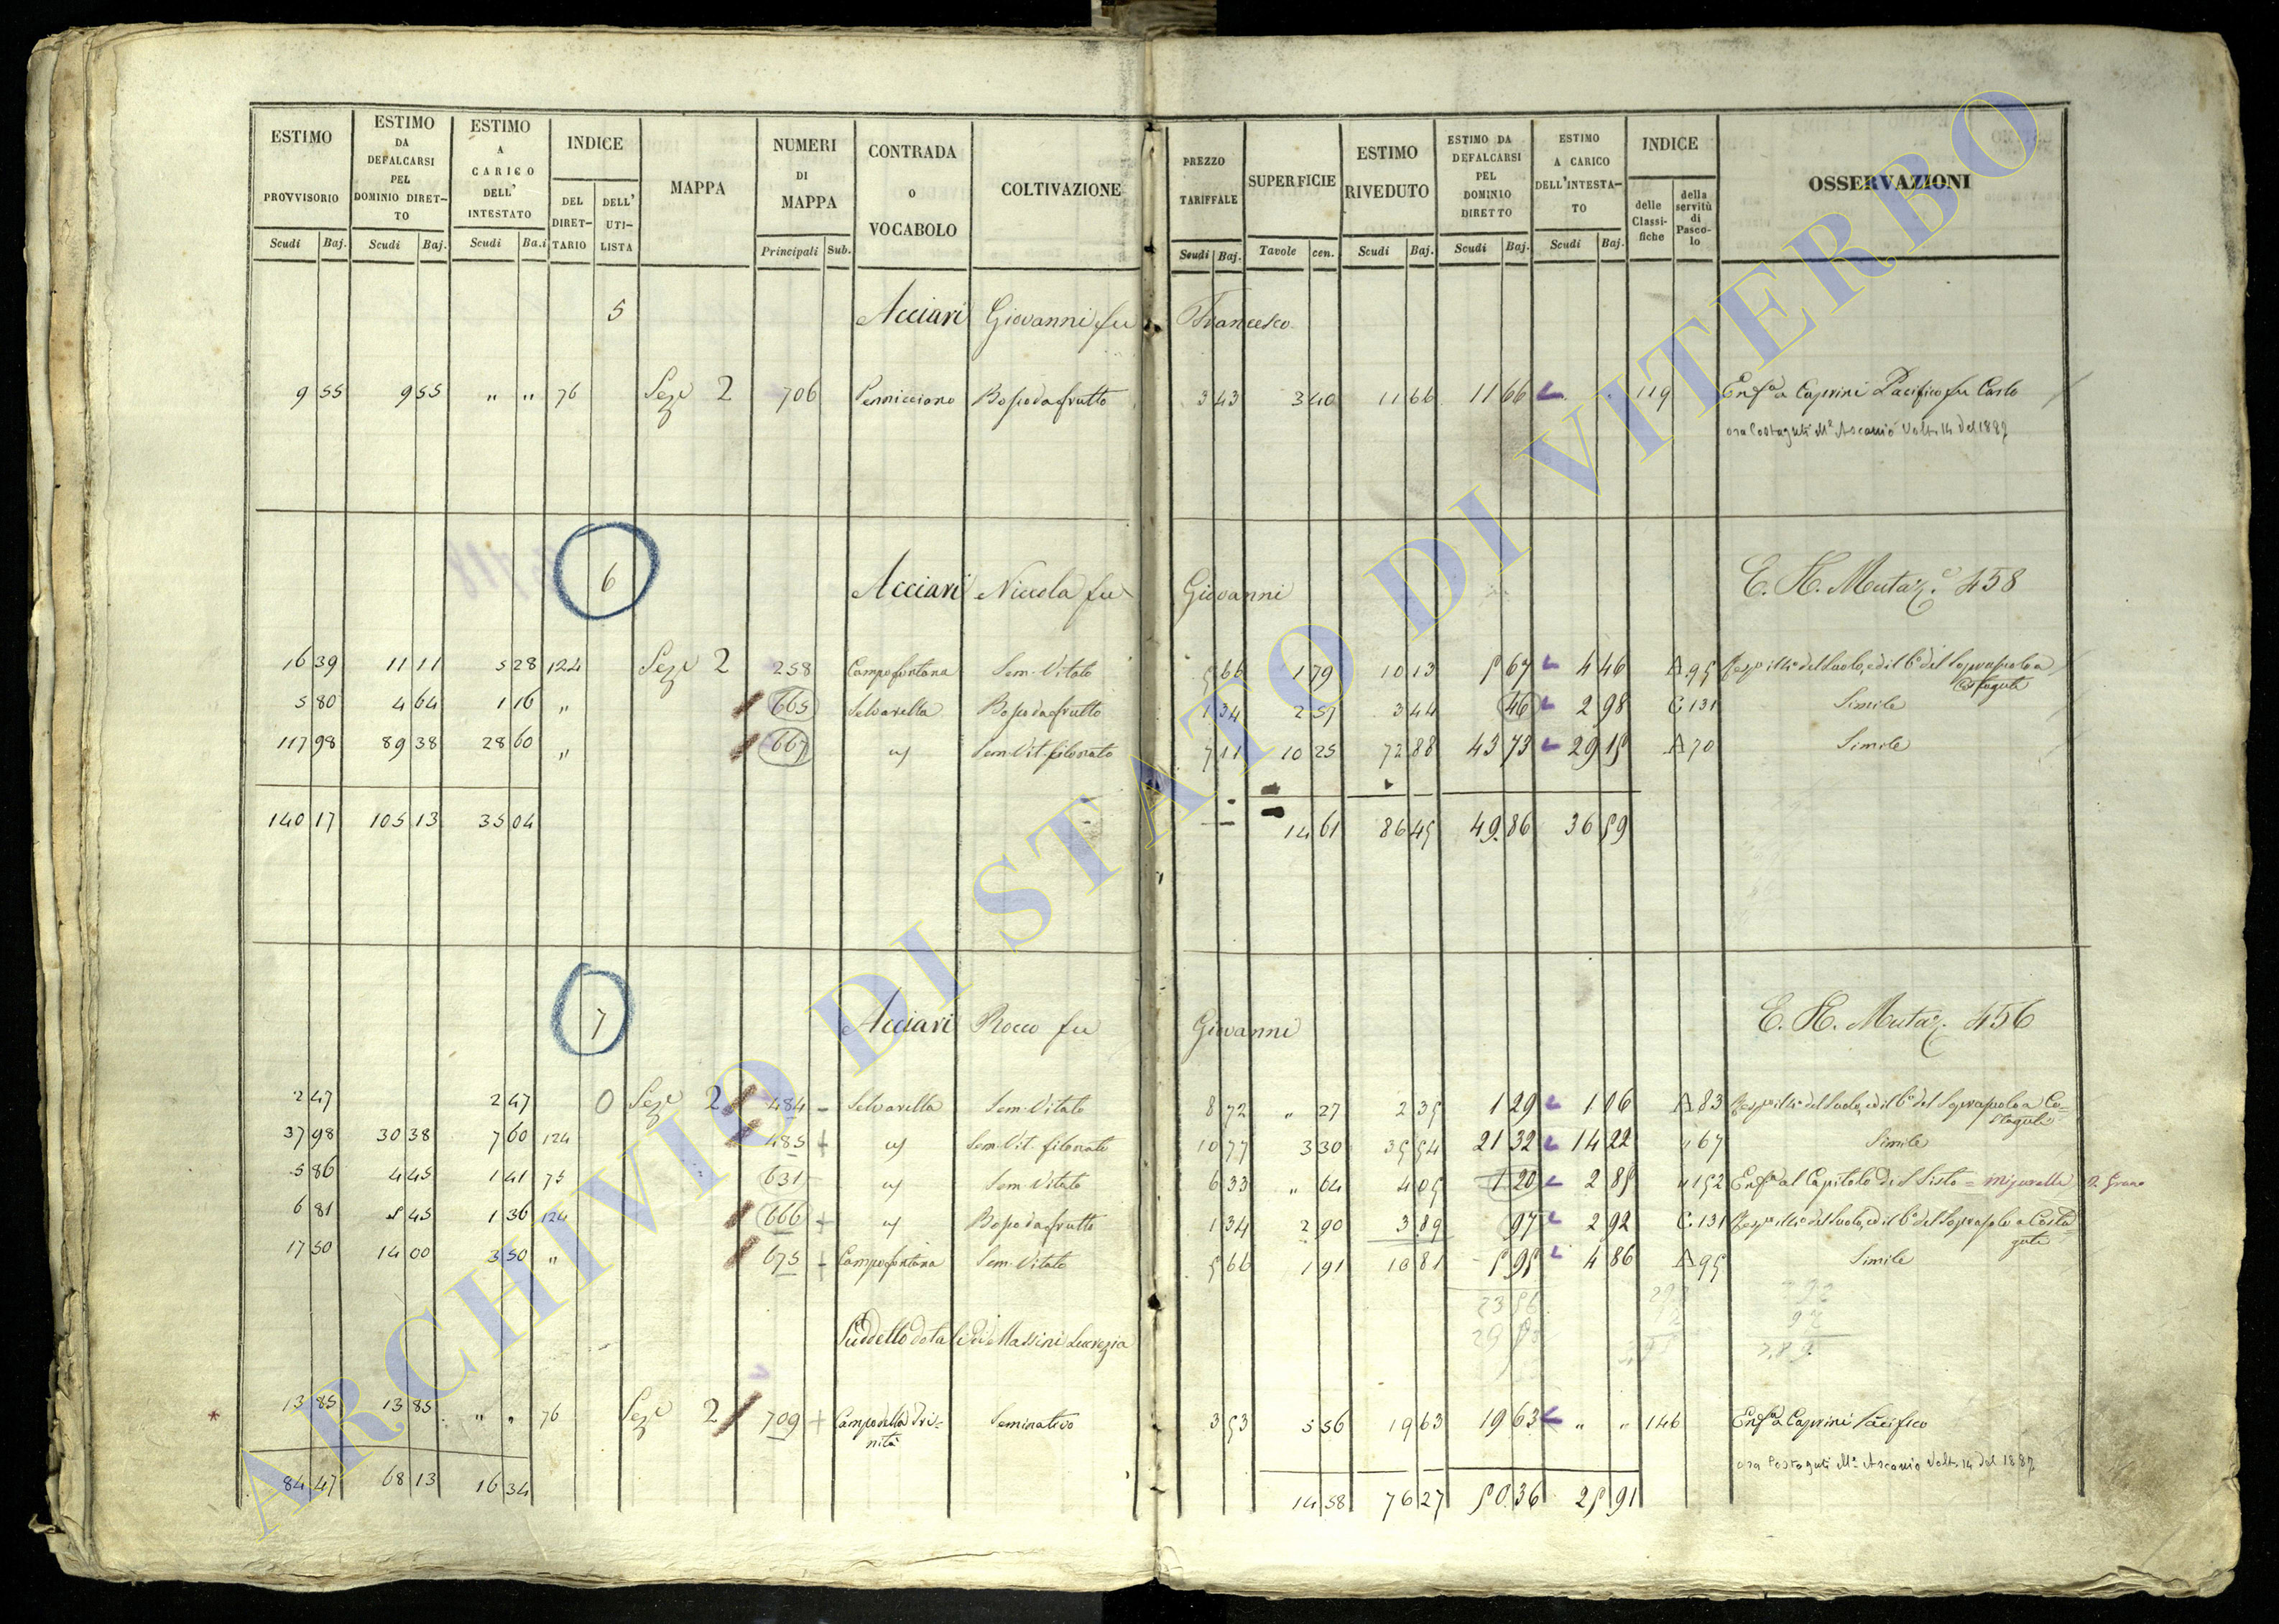 ESTIMO PROVVISORIO Scudi Baj. ESTIMO DA DEFALCARSI PEL DOMINIO DIRETTO Scudi Baj. ESTIMO A CARICO DELL' INTESTATO Scudi Ba.i INDICE DEL DIRETTARIO DELL' UTILISTA MAPPA NUMERI DI MAPPA Principali Sub. CONTRADA O VOCABOLO COLTIVAZIONE PREZZO TARIFFALE Scudi Baj. SUPERFICIE Tavole cen. ESTIMO RIVEDUTO Scudi Baj. ESTIMO DA DEFALCARSI PEL DOMINIO DIRETTO Scudi Baj. ESTIMO A CARICO DELL'INTESTATO Scudi Baj. INDICE delle Classifiche della servitù di Pascolo OSSERVAZIONI
5 Acciari Giovanni fu Francesco
9 55 9 55 " " 76 Seze 2 706 Bosso da frutto 3 43 3 40 11 66 11 66 119 Enfa a Caprini Pacifico fu Carlo
ora Costaguti Me Ascanio Volt. 14 del 1887
6 Acciari Niccola fu Giovanni E. H. Mutaz. 458
16 39 11 11 5 28 124 Seze 2 258 Campofontana Sem. Vitato 5 66 1 79 10 13 5 67 4 46 A 95 del Suolo, ed il 6o del Soprasuolo a Costaguti
5 80 4 64 1 16 " 665 Selvarella Bosso da frutto 1 34 2 57 3 44 46 2 98 C 131 Simile
117 98 89 38 28 60 " 667 Sem. Vit. filonato 7 11 10 25 72 88 43 73 29 15 A 70 Simile
140 17 105 13 35 04 14 61 86 45 49 86 36 59
7 Acciari Rocco fu Giovanni E. H. Mutaz. 456
2 47 2 47 0 Seze 2 484 Selvarella Sem. Vitato 8 72 " 27 2 35 1 29 1 06 A 83 del Suolo, ed il 6o del Soprasuolo a Costaguti
37 98 30 38 7 60 124 485 Sem. Vit. filonato 10 77 3 30 35 54 21 32 14 22 " 67 Simile
5 86 4 45 1 41 75 631 Sem. Vitato 6 33 " 64 4 05 1 20 2 85 " 152 Enfa al Capitolo di S. Sisto = Grano
6 81 5 45 1 36 124 666 Bosso da frutto 1 34 2 90 3 89 97 2 92 C. 131 del Suolo, ed il 6o del Soprasolo a Costaguti
17 50 14 00 3 50 " 675 Campofontana Sem. Vitato 5 66 1 91 10 81 5 95 4 86 A 95 Simile
Suddetto dotali di Massini Lucrezia
13 85 13 85 " " 76 Seze 2 709 Campo della Trinità Seminativo 3 53 5 56 19 63 19 63 " " 146 Enfa a Caprini Pacifico
ora Costaguti Me Ascanio Volt. 14 del 1887
84 47 68 13 16 34 14 58 76 27 50 36 25 91
ARCHIVIO DI STATO DI VITERBO